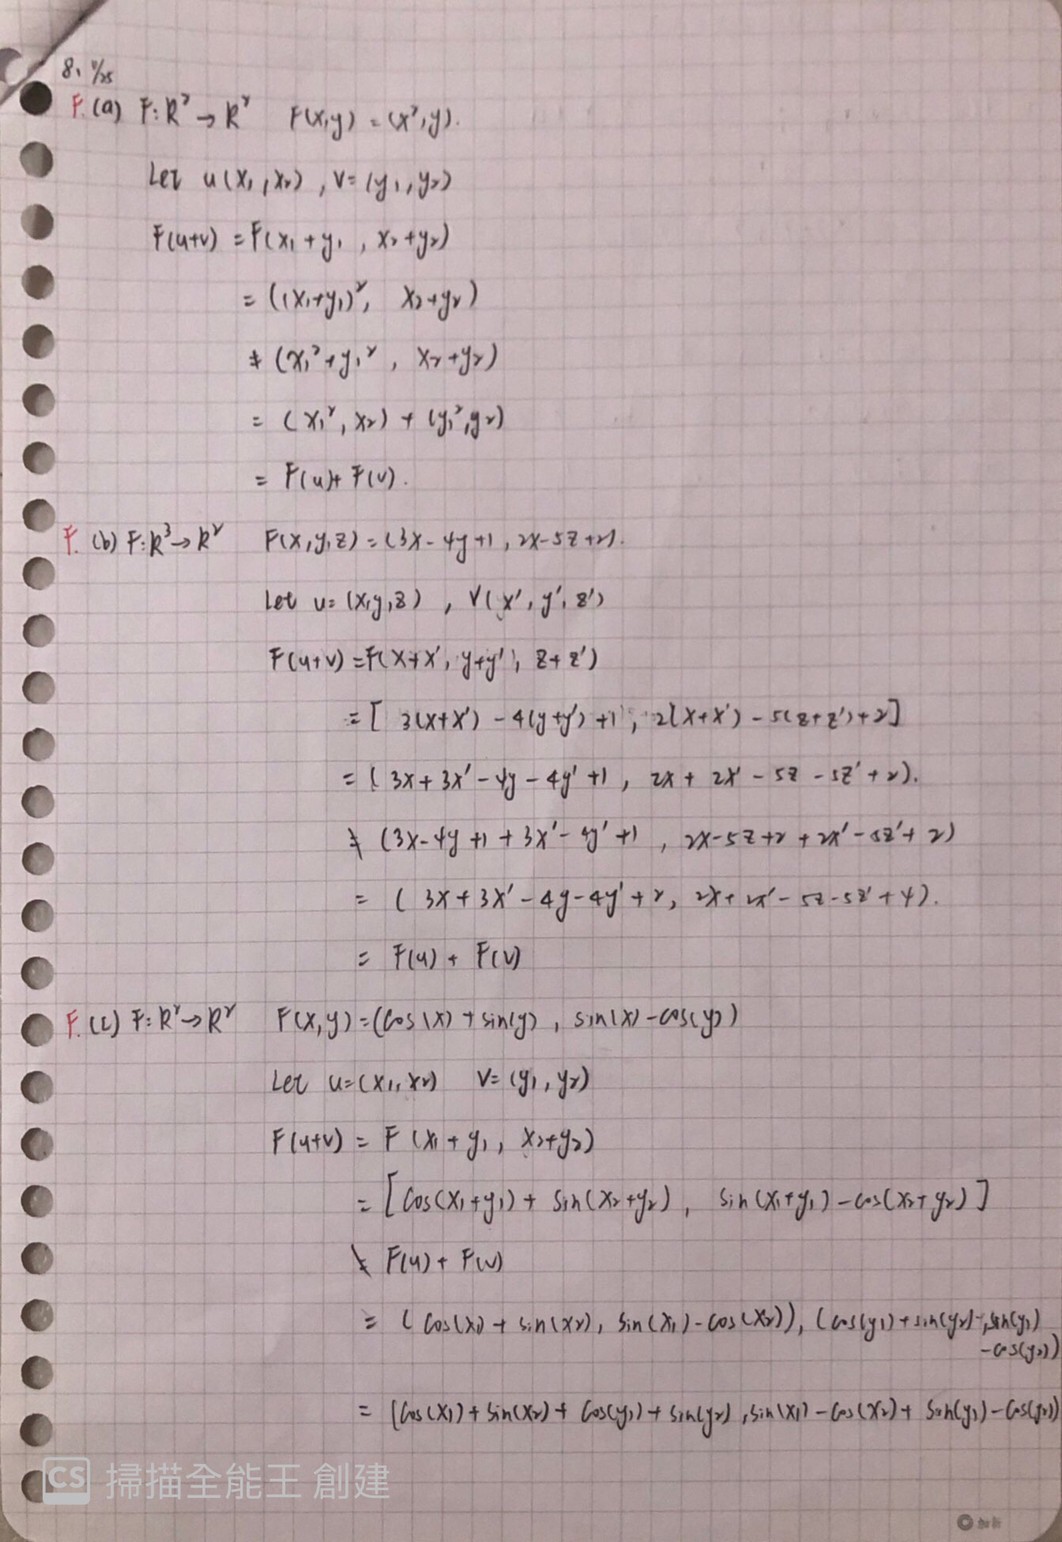 8. 11/25
F. (a) F: R² → R² F(x,y) = (x², y).
Let u(x₁, x₂), v = (y₁, y₂)
F(u+v) = F(x₁+y₁, x₂+y₂)
= ((x₁+y₁)², x₂+y₂)
≠ (x₁²+y₁², x₂+y₂)
= (x₁², x₂) + (y₁², y₂)
= F(u)+ F(v).
F. (b) F: R³ → R² F(x,y,z) = (3x-4y+1, 2x-5z+2).
Let u = (x,y,z), v(x', y', z')
F(u+v) = F(x+x', y+y', z+z')
= [ 3(x+x') - 4(y+y') +1, 2(x+x') - 5(z+z')+2]
= ( 3x+3x' - 4y - 4y' +1, 2x + 2x' - 5z - 5z' + 2).
≠ (3x-4y+1 + 3x' - 4y' +1, 2x-5z+2 + 2x' - 5z' + 2)
= ( 3x+3x' - 4y-4y' + 2, 2x+2x' - 5z-5z' + 4).
= F(u) + F(v)
F. (c) F: R² → R² F(x,y) = (cos(x) + sin(y), sin(x) - cos(y))
Let u = (x₁, x₂) v = (y₁, y₂)
F(u+v) = F (x₁+y₁, x₂+y₂)
= [cos(x₁+y₁) + sin(x₂+y₂), sin(x₁+y₁) - cos(x₂+y₂)]
≠ F(u) + F(v)
= (cos(x₁) + sin(x₂), sin(x₁) - cos(x₂)), (cos(y₁) + sin(y₂), sin(y₁)
- cos(y₂))
= (cos(x₁) + sin(x₂) + cos(y₁) + sin(y₂), sin(x₁) - cos(x₂) + sin(y₁) - cos(y₂))
CS 掃描全能王 創建